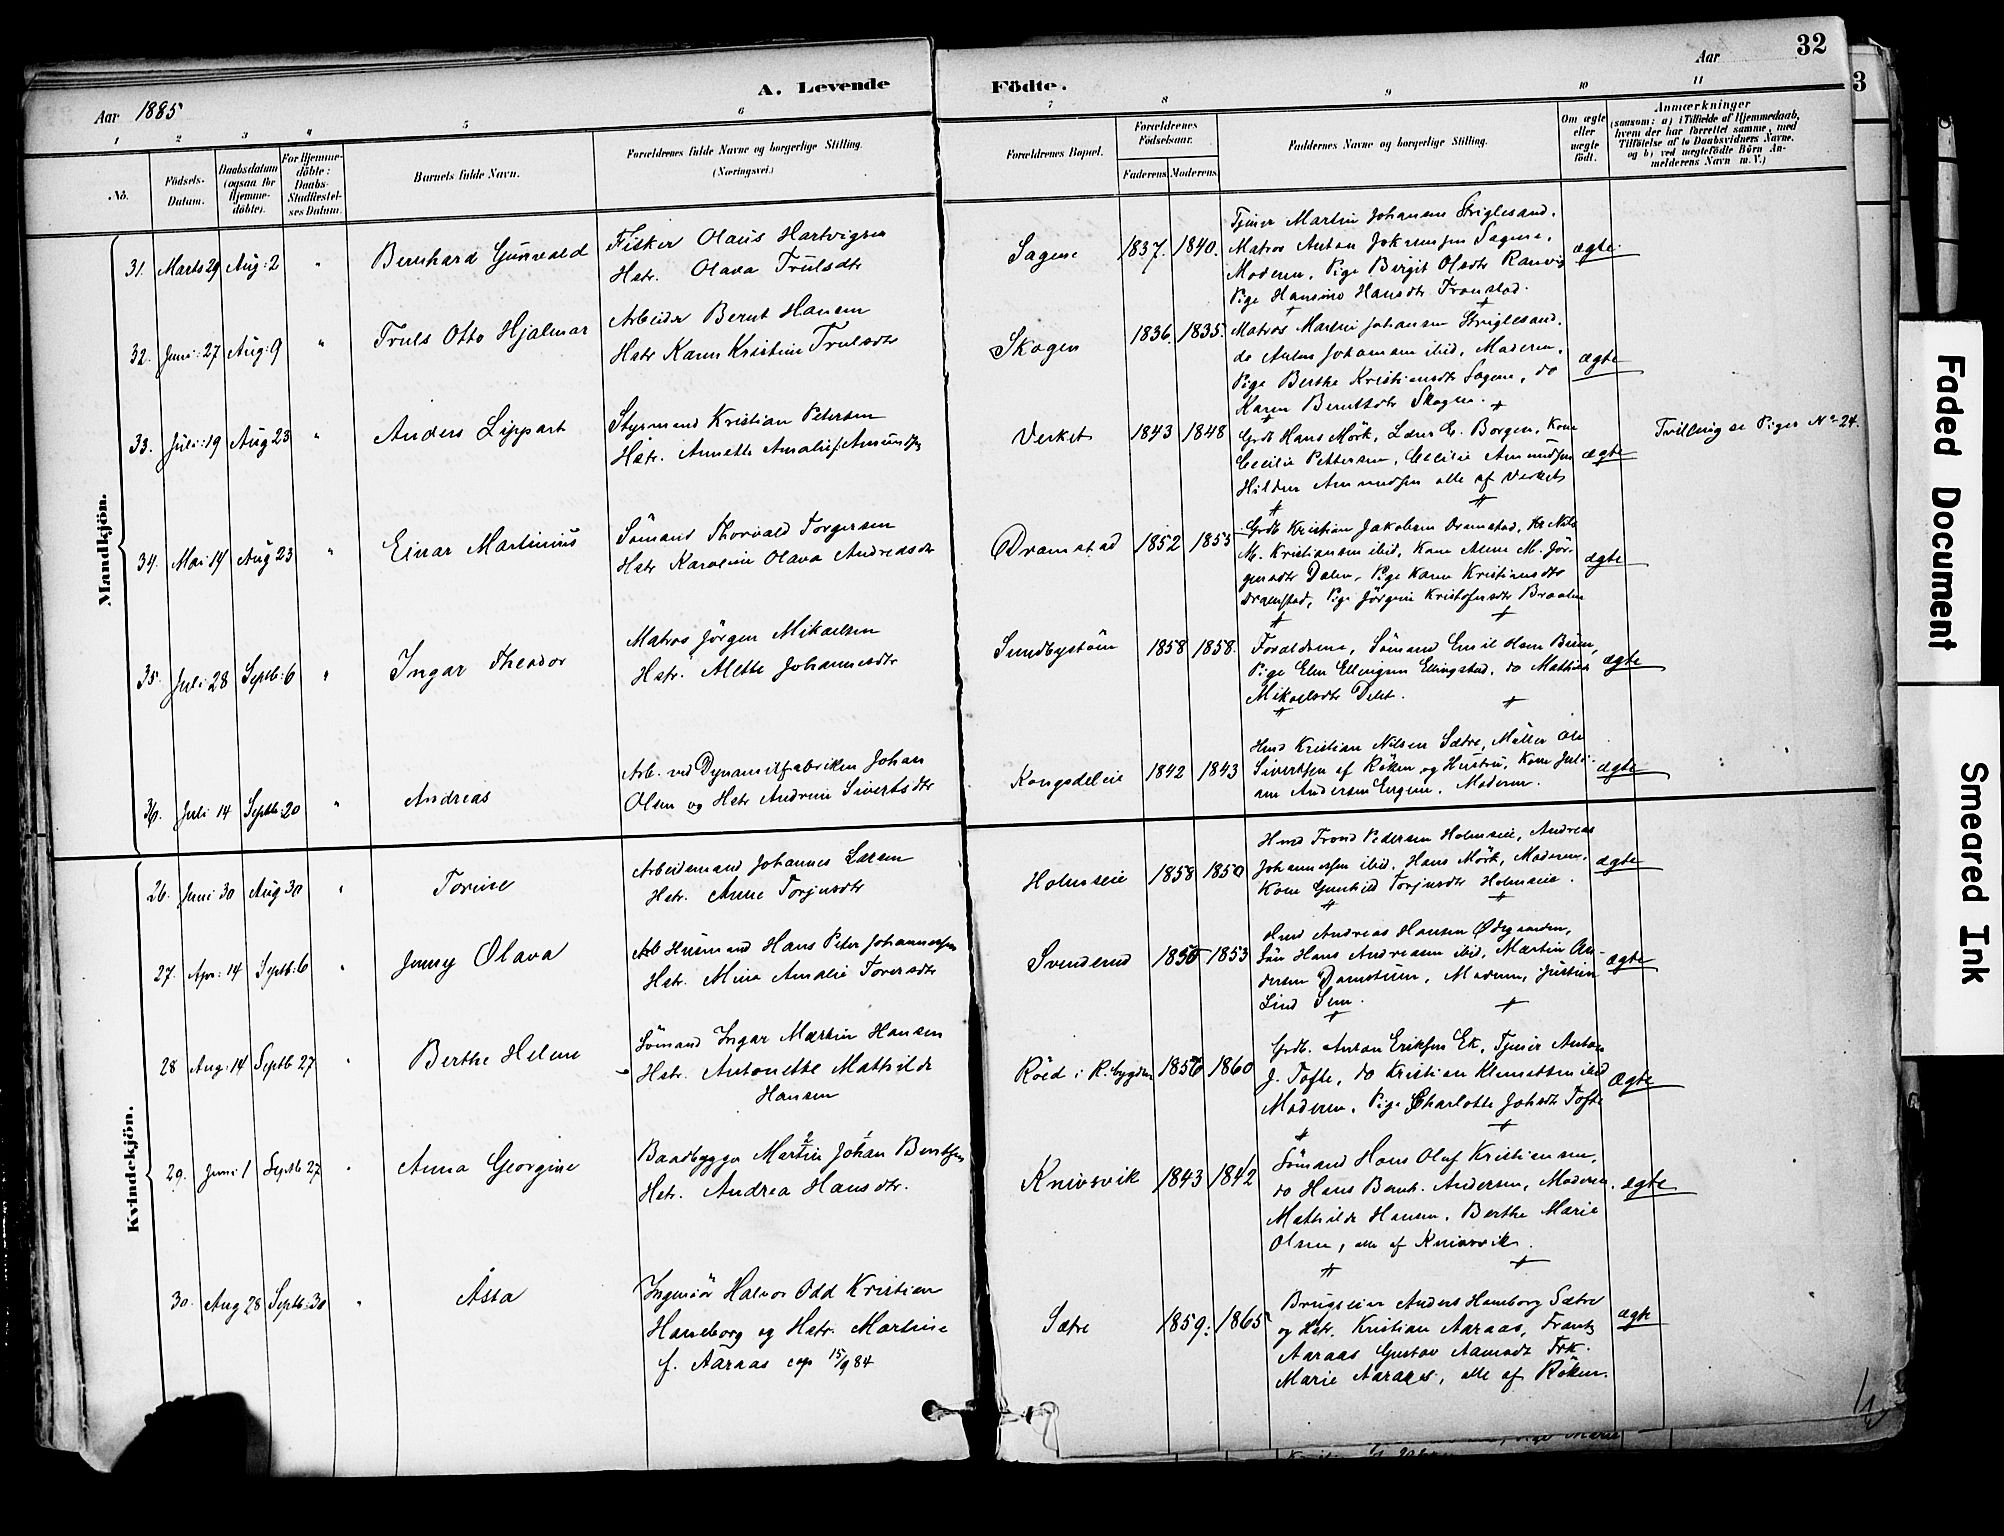 32
Aar 1885
A. Levende
Födte.
Aar
1 2 3 4 5 6 7 8 9 10 11
No.
Födsels-
Datum.
Daabsdatum
(ogsaa for
Hjemme-
döbte).
For Hjemme-
döbte:
Daabs-
Stadfæstel-
ses Datum.
Barnets fulde Navn.
Forældrenes fulde Navne og borgerlige Stilling.
(Næringsvei.)
Forældrenes Bopæl.
Forældrenes
Födselsaar.
Faderens. Moderens.
Faddernes Navne og borgerlige Stilling.
Om ægte
eller
uægte
født.
Anmærkninger
(saasom: a) i Tilfælde af Hjemmedaab,
hvem der har forrettet samme, med
Tilföielse af to Daabsvidners Navne.
og b) ved uægtefödte Börn An-
melderens Navn m. V.)
Mandkjön.
31. Marts 29 Aug: 2 " Bernhard Gunvald
Fisker Olaus Hartvigsen
Hstr. Olava Trulsdtr
Sagene 1837. 1840.
Tjener Martin Johansen Striglesand.
Matros Anton Johansen Sagene,
Moderen, Pige Birgit Olsdtr Ramvig
Pige Hansine Hansdtr Tronstad.
ægte
32. Juni: 27 Aug: 9 " Truls Otto Hjalmar
Arbeider Bernt Hansen
Hstr Karen Kristine Trulsdtr
Skogen 1836. 1835.
Matros Martin Johansen Striglesand.
do Anton Johansen ibid, Moderen.
Pige Berthe Kristiansdtr Sagene, do
Karen Berntsdtr Skogen.
ægte
33. Juli: 19 Aug 23 " Anders Lippart
Styrmand Kristian Petersen
Hstr. Annette Amalie f. Amundsen
Verket 1843 1848
Grdb Hans Mörk, Lærer E. Borgen, Kone
Cecilie Pettersen, Cecilie Amundsen
Hilden Amundsen alle af Verket
ægte
Tvilling se Piger No 24.
34. Mai 14 Aug 23 " Einar Martinius
Sömand Thorvald Torgersen
Hstr Karoline Olava Andreasdtr
Dramstad 1852 1853
Grdb Kristian Jakobsen Dramstad, Kr Nils
M. Kristiansen ibid, Kone Anne M. Jör-
gensdtr Dalen, Pige Karen Kristiansdtr
Dramstad, Pige Jörgine Kristofersdtr Braaten
ægte
35. Juli 28 Septb: 6 " Ingar Theodor
Matros Jörgen Mikaelsen
Hstr. Alette Johannesdtr
Sundbystöen 1858 1858.
Forældrene, Sömand Emil Hansen,
Pige Elen Ellingsen Ellingstad, do Mathilde
Mikaelsdtr Delet.
ægte
36. Juli 14 Septb: 20 " Andreas
Arb. ved Dynamitfabriken Johan
Olsen og Hstr Andrine Sivertsdtr
Kongsdeleie 1842 1843
Hmd Kristian Nilsen Sætre, Möller Ole
Sivertsen af Röken og Hustru, Kone Juli-
ane Andersen Engene, Moderen.
ægte
Kvindekjön.
26. Juni 30 Aug 30 " Torine
Arbeidsmand Johannes Larsen
Hstr. Anne Torjusdtr
Holmseie 1858 1850
Hmd Trond Pedersen Holmseie, Andreas
Johannessen ibid, Hans Mörk, Moderen.
Kone Gunhild Torjusdtr Holmseie.
ægte
27. Apr: 14 Septb: 6 " Jenny Olava
Arb Husmand Hans Peter Johannessen
Hstr. Mina Amalie Toversdtr
Svenderud 1856 1853
Hmd Andreas Hansen Ødegaarden,
Sön Hans Andreasen ibid, Martin An-
dersen, Moderen, Justine
Lind Sem.
ægte
28 Aug: 14 Septb 27 " Berthe Helene
Sömand Ingar Martin Hansen
Hstr. Antonette Mathilde
Hansen
Röed i R.bygden 1856 1860
Grdb. Anton Eriksen Ek, Tjener Anton
J. Tofte, do Kristian Klemetsen ibid
Moderen, Pige Charlotte Johsdtr Tofte
Ægte
29. Juni 1 Septb 27 " Anna Georgine
Baadbygger Martin Johan Berntsen
Hstr. Andrea Hansdtr.
Knivsvik 1843 1842
Sömand Hans Olaf Kristiansen,
do Hans Bernh. Andersen, Moderen.
Mathilde Hansen, Berthe Marie
Olsen, alle af Knivsvik.
ægte
30. Aug 28 Septb: 30 " Åsta
Ingeniör Halvor Odd Kristian
Haneborg og Hstr. Martine
f. Aaraas cop 15/9 84
Sætre 1859. 1865
Brugseier Anders Haneborg Sætre
og Hstr. Kristian Aaraas, Frantz
Aaraas Gustav Aamodt Frk.
Marie Aaraas, alle af Röken.
ægte
3
Faded Document
Smeared Ink